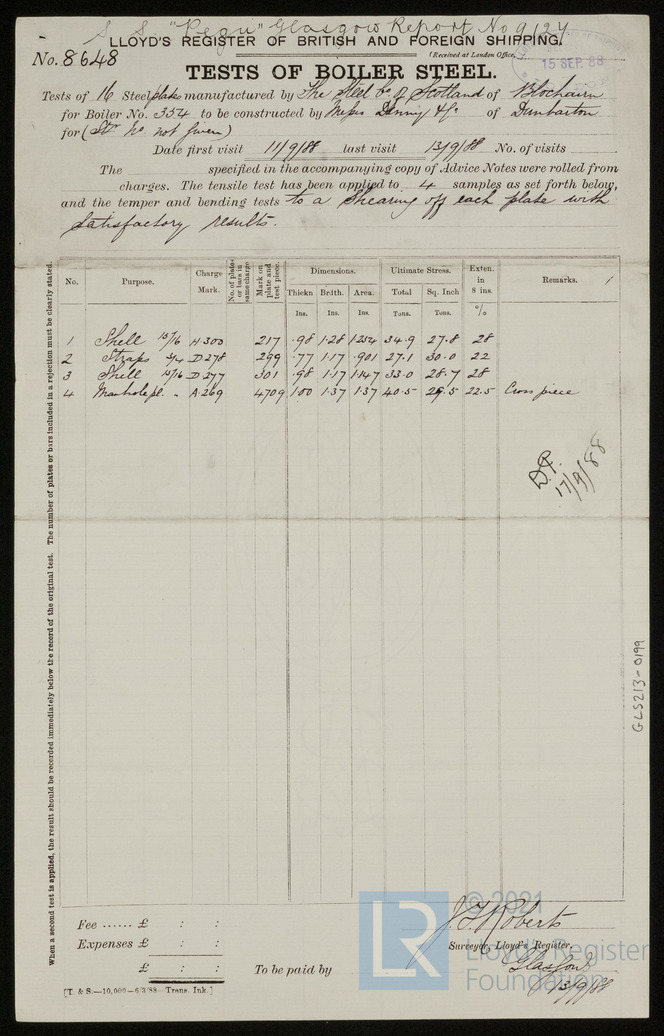 S. S. "Pegu" Glasgow Report No 9127
LLOYD'S REGISTER OF BRITISH AND FOREIGN SHIPPING.
No. 8648
(Received at London Office,
15 SEP. 88
TESTS OF BOILER STEEL.
Tests of 16 Steel plates manufactured by The Steel Co. of Scotland of Blochairn
for Boiler No. 354 to be constructed by Messrs Denny & Co of Dumbarton
for (Str No not given)
Date first visit 11/9/88 last visit 13/9/88 No. of visits
The specified in the accompanying copy of Advice Notes were rolled from
charges. The tensile test has been applied to 4 samples as set forth below,
and the temper and bending tests to a shearing off each plate with
satisfactory results.
When a second test is applied, the result should be recorded immediately below the record of the original test. The number of plates or bars included in a rejection must be clearly stated.
No. Purpose. Charge Mark. No. of plates or bars in same charge Mark on plate and test piece. Dimensions. Ultimate Stress. Exten. in 8 ins. Remarks.
Thickn Brdth. Area. Total Sq. Inch %
Ins. Ins. Ins. Tons. Tons.
1 Shell 15/16 H 300 217 .98 1.28 1.254 34.9 27.8 28
2 Straps 3/4 D 278 299 .77 1.17 .901 27.1 30.0 22
3 Shell 15/16 D 277 301 .98 1.17 1.147 33.0 28.7 28
4 Manhole pl. " A 269 4709 1.00 1.37 1.37 40.5 29.5 22.5 Cross piece
17/9/88
GLS213-0199
Fee ...... £ : :
Expenses £ : :
£ : :
To be paid by
J. T. Roberts
Surveyor, Lloyd's Register,
Glasgow
13/9/88
[T. & S.—10,000—6/3/88—Trans. Ink.]
LR
© 2021
Lloyd's Register
Foundation